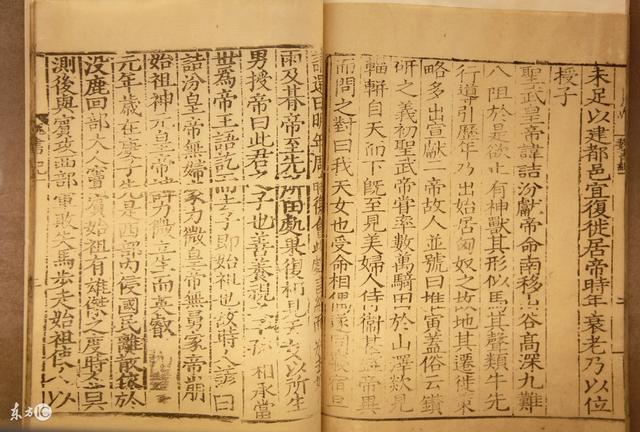 未足以建都邑宜復徙居帝時年衰老乃以位
授子
聖武皇帝諱詰汾獻帝命南移山谷高深九難
八阻於是欲止有神獸其形似馬其聲類牛先
行導引歷年乃出始居匈奴之故地其遷徙策
略多出宣獻二帝故人並號曰推寅蓋俗云鑽
研之義初聖武帝嘗率數萬騎田於山澤欻見
輜軿自天而下既至見美婦人侍衛甚盛帝異
而問之對曰我天女也受命相偶遂同寢宿旦
請還曰明年周時復會此處言終而
雨及朞帝至先所田處果復相見天女以所生
男授帝曰此君之子也善養視之子孫相承當
世為帝王語訖而去子即始祖也故時人諺曰
詰汾皇帝無婦家力微皇帝無舅家帝崩
始祖神元皇帝諱力微立生而英叡
元年歲在庚子先是西部內侵國民離散依於
没鹿回部大人竇賓始祖有雄傑之度時人莫
測後與賓攻西部軍敗失馬步走始祖使人以
東方IC